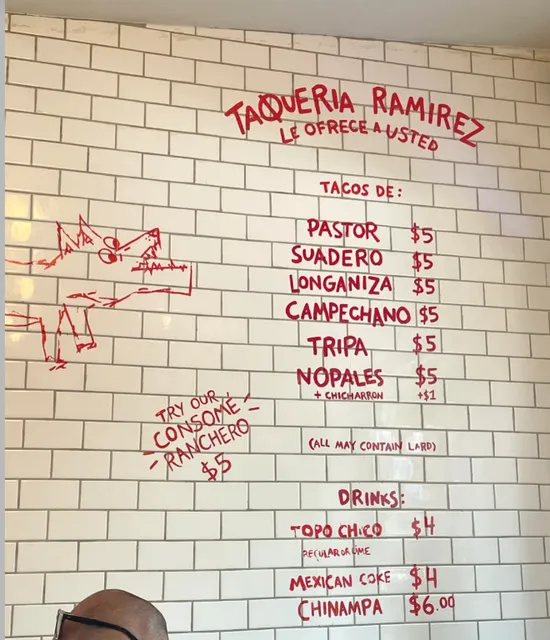 TAQUERIA RAMIREZ
LE OFRECE A USTED
TACOS DE:
PASTOR $5
SUADERO $5
LONGANIZA $5
CAMPECHANO $5
TRIPA $5
NOPALES $5
+ CHICHARRON +$1
(ALL MAY CONTAIN LARD)
TRY OUR
CONSOME
RANCHERO
$5
DRINKS:
TOPO CHICO $4
REGULAR OR LIME
MEXICAN COKE $4
CHINAMPA $6.00